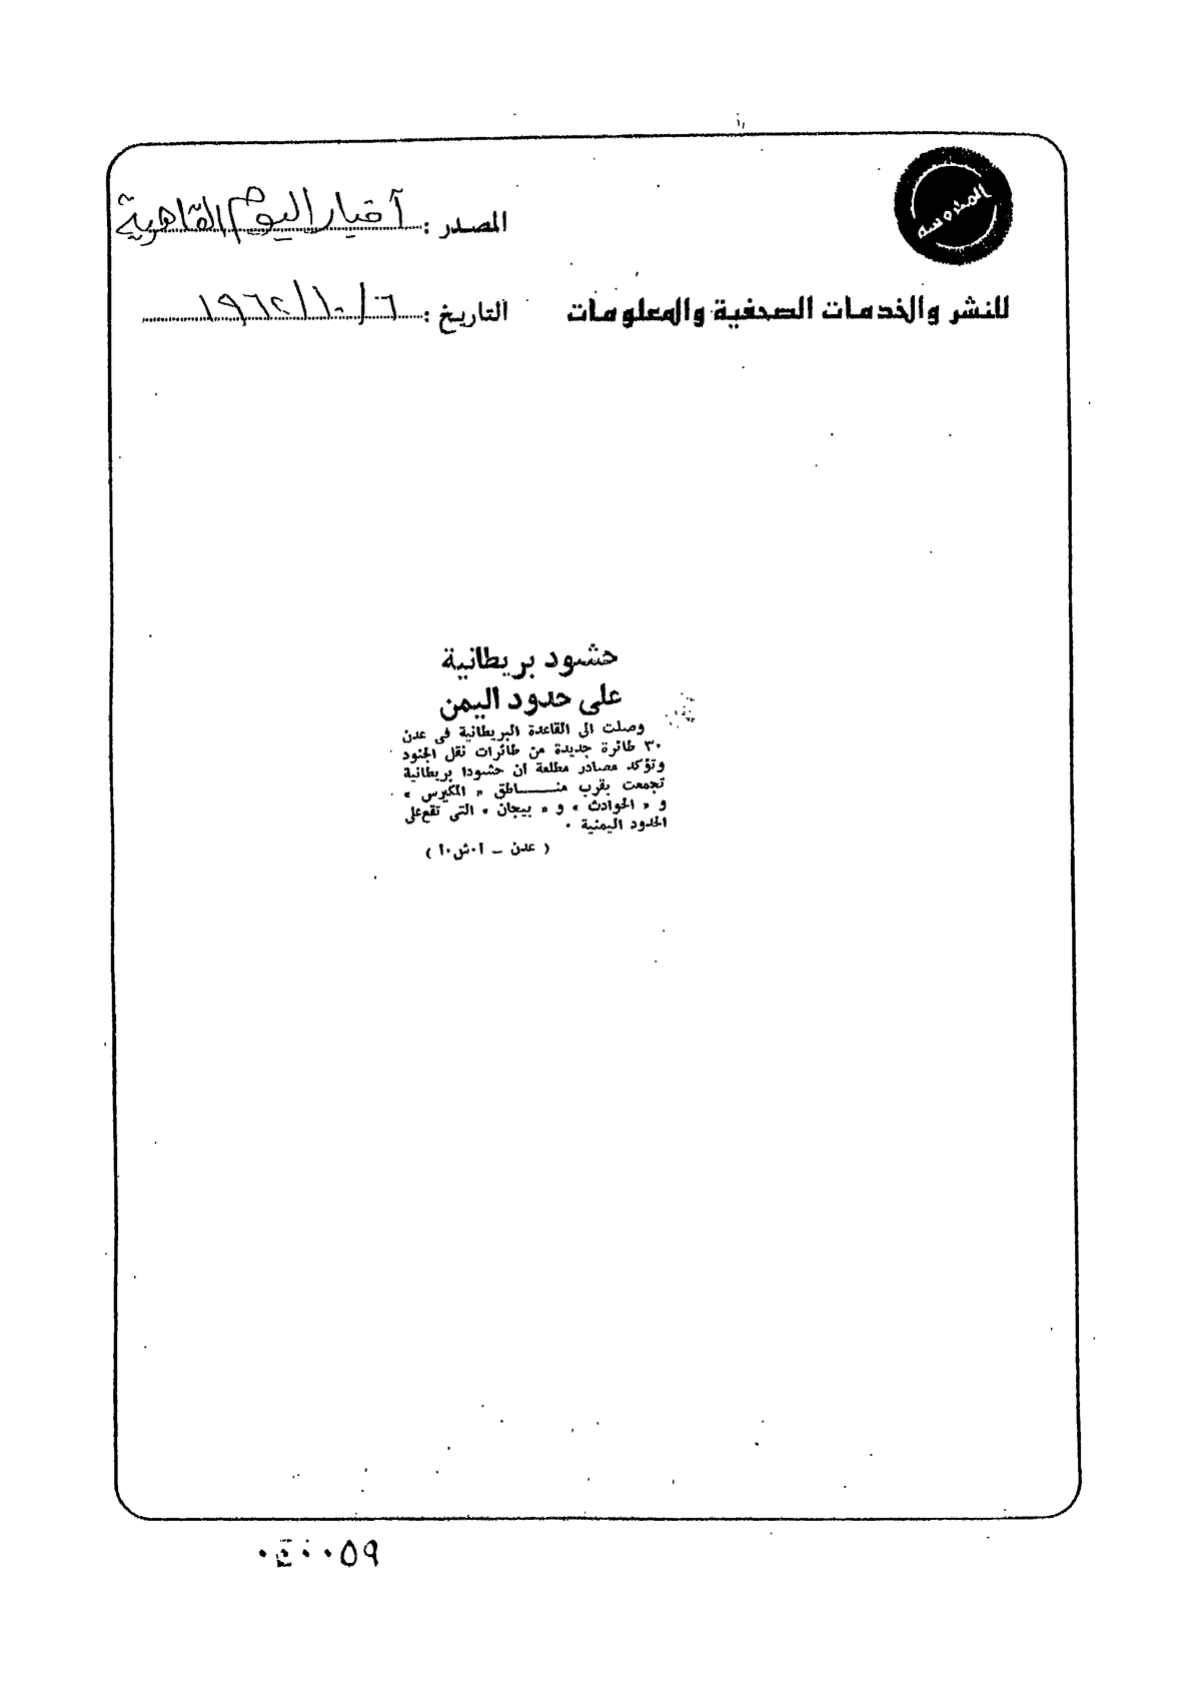 المحروسة
المصدر : أخبار اليوم القاهرية
للنشر والخدمات الصحفية والمعلومات
التاريخ : ٦/١٠/١٩٦٢
حشود بريطانية
على حدود اليمن
وصلت الى القاعدة البريطانية فى عدن
٣٠ طائرة جديدة من طائرات نقل الجنود
وتؤكد مصادر مطلعة ان حشودا بريطانية
تجمعت بقرب منـــــاطق « المكيرس »
و « الحوادث » و « بيجان » التى تقع على
الحدود اليمنية .
( عدن ــ أ.ش.أ )
٠٤٠٠٥٩